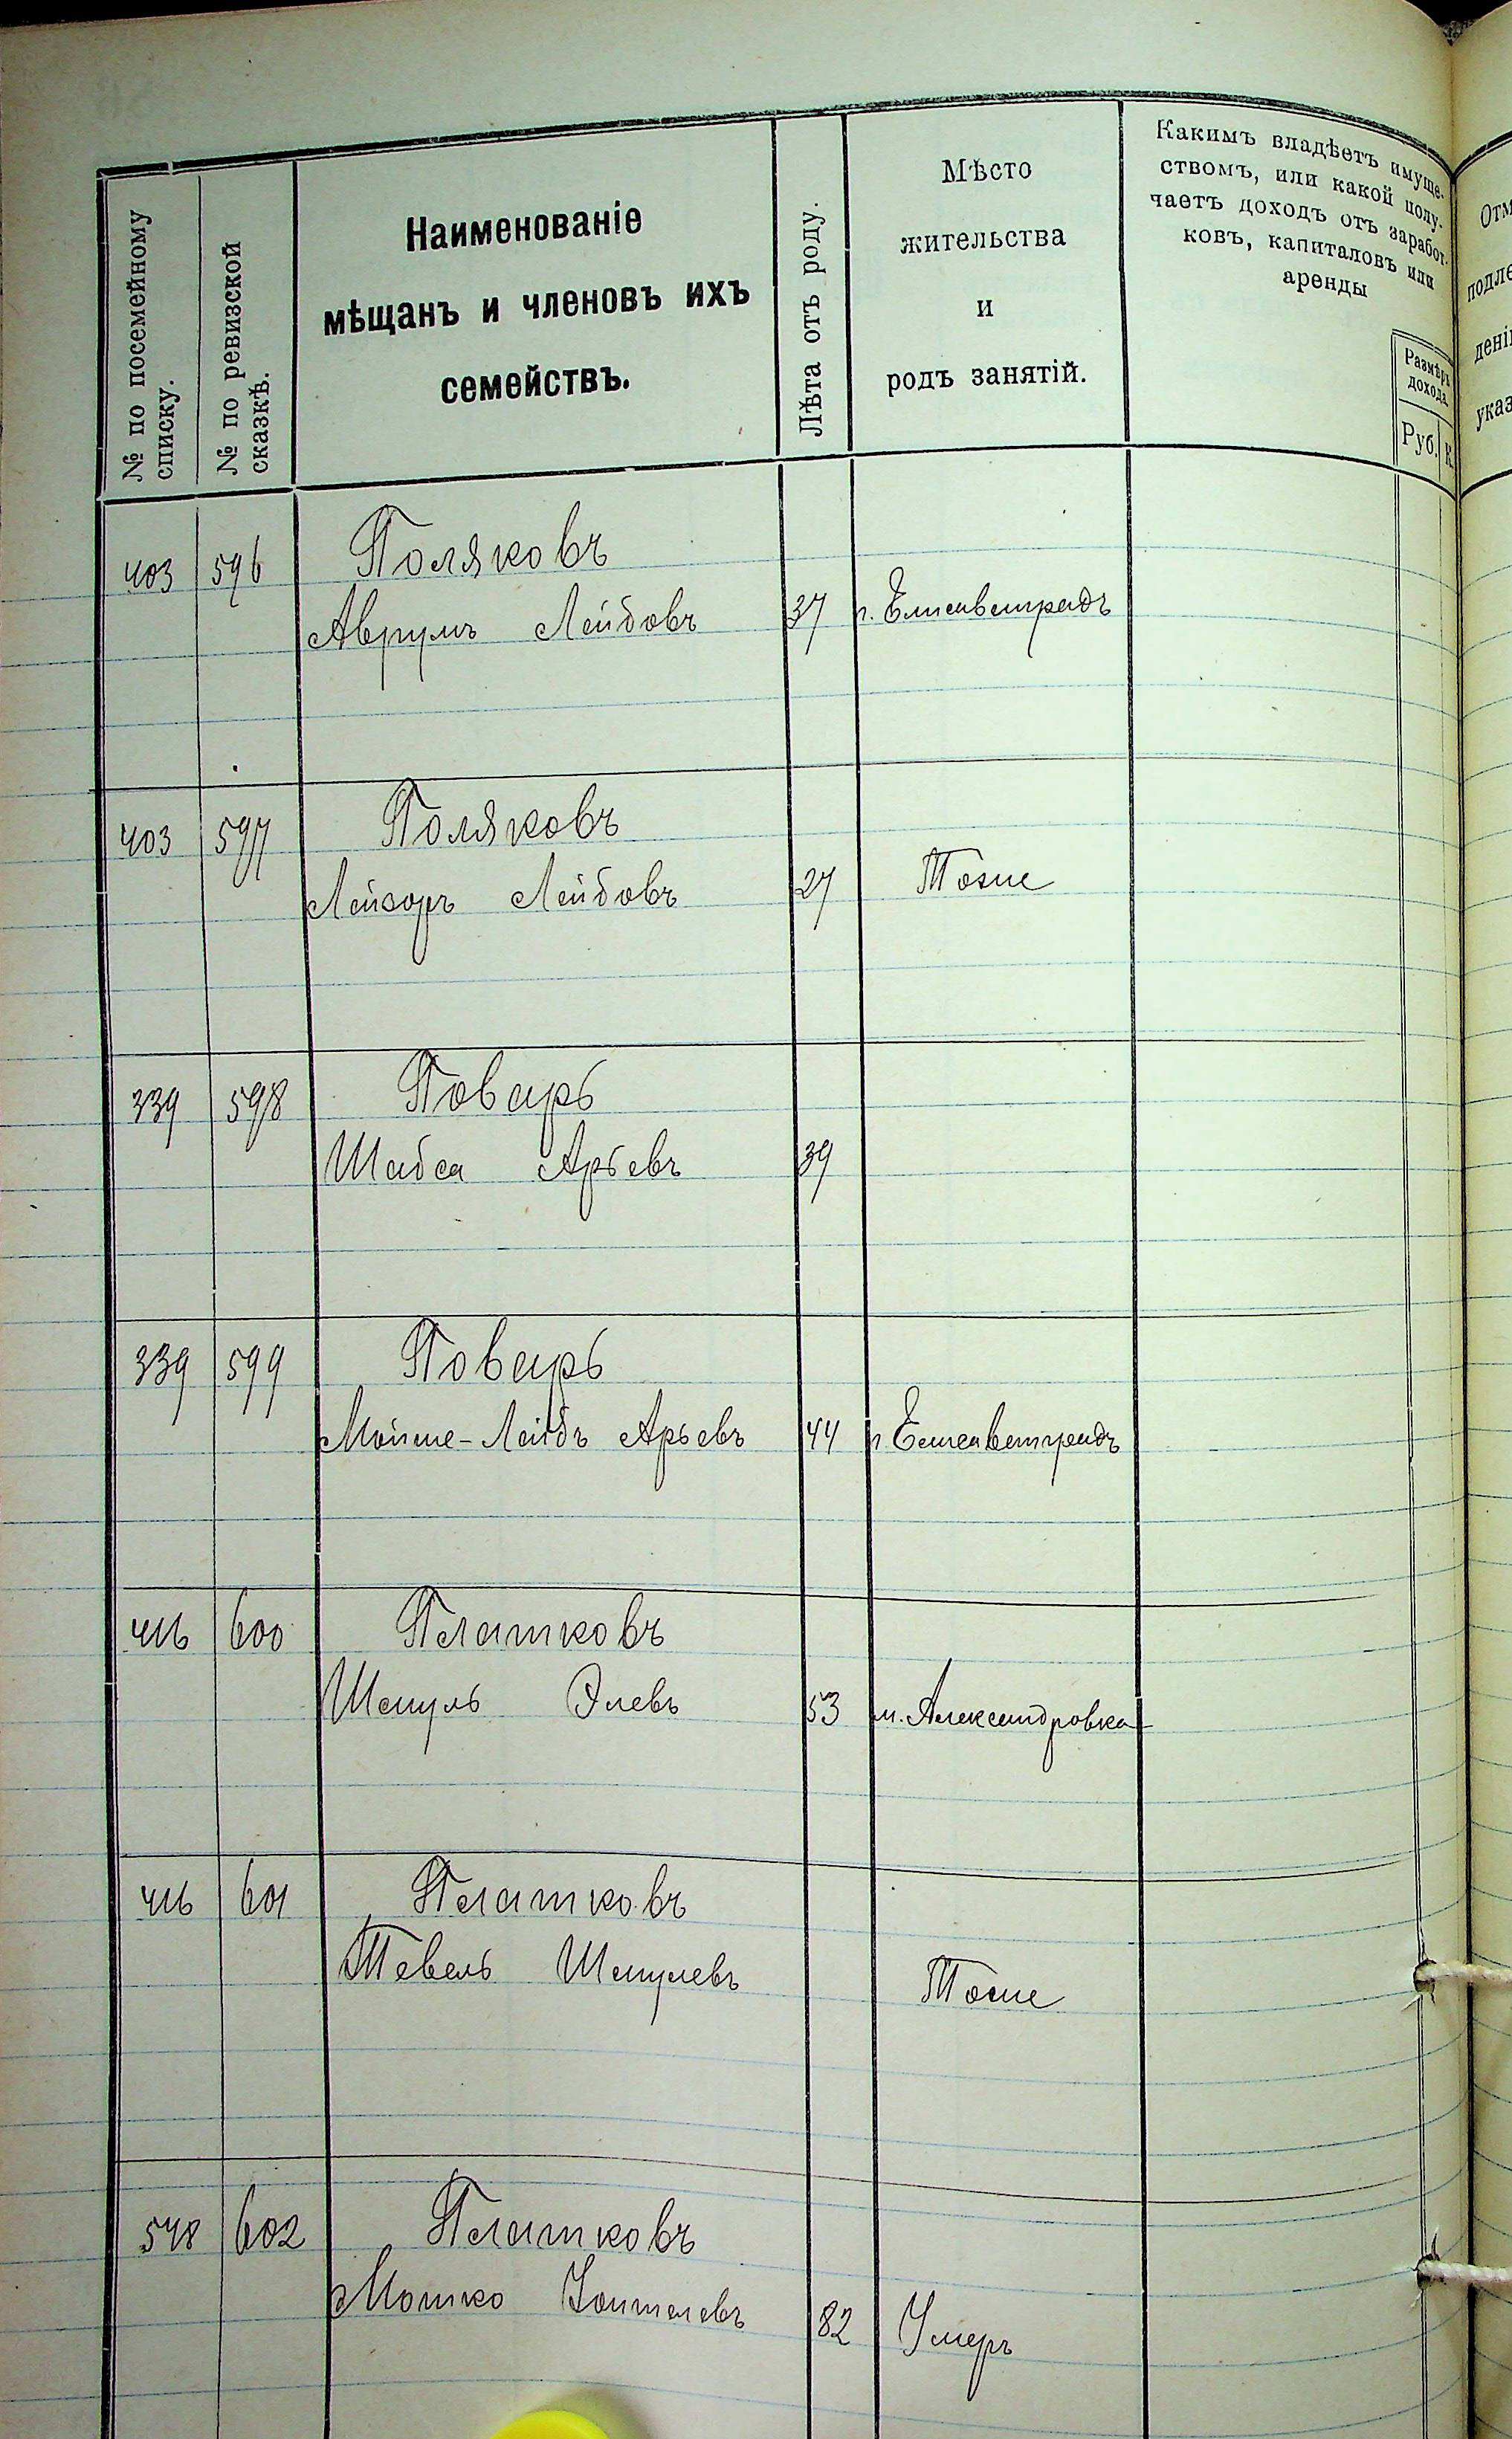 № по посемейному
списку.
№ по ревизской
сказкѣ.
Наименованіе
мѣщанъ и членовъ ихъ
семействъ.
Лѣта отъ роду.
Мѣсто
жительства
и
родъ занятій.
Какимъ владѣетъ имуще-
ствомъ, или какой полу-
чаетъ доходъ отъ заработ-
ковъ, капиталовъ или
аренды
Размѣръ
дохода.
Руб. К.
403 596 Поляковъ
Аврумъ Лейбовъ 37 г. Елисаветградъ
403 597 Поляковъ
Лейзоръ Лейбовъ 27 Тоже
339 598 Поварь
Шабса Арьевъ 39
339 599 Поварь
Мойше-Лейбъ Арьевъ 44 г Елисаветградъ
416 600 Платковъ
Шмуль Элевъ 53 м. Александровка
416 601 Платковъ
Тевель Шмулевъ Тоже
548 602 Платковъ
Мошко 82 Умеръ